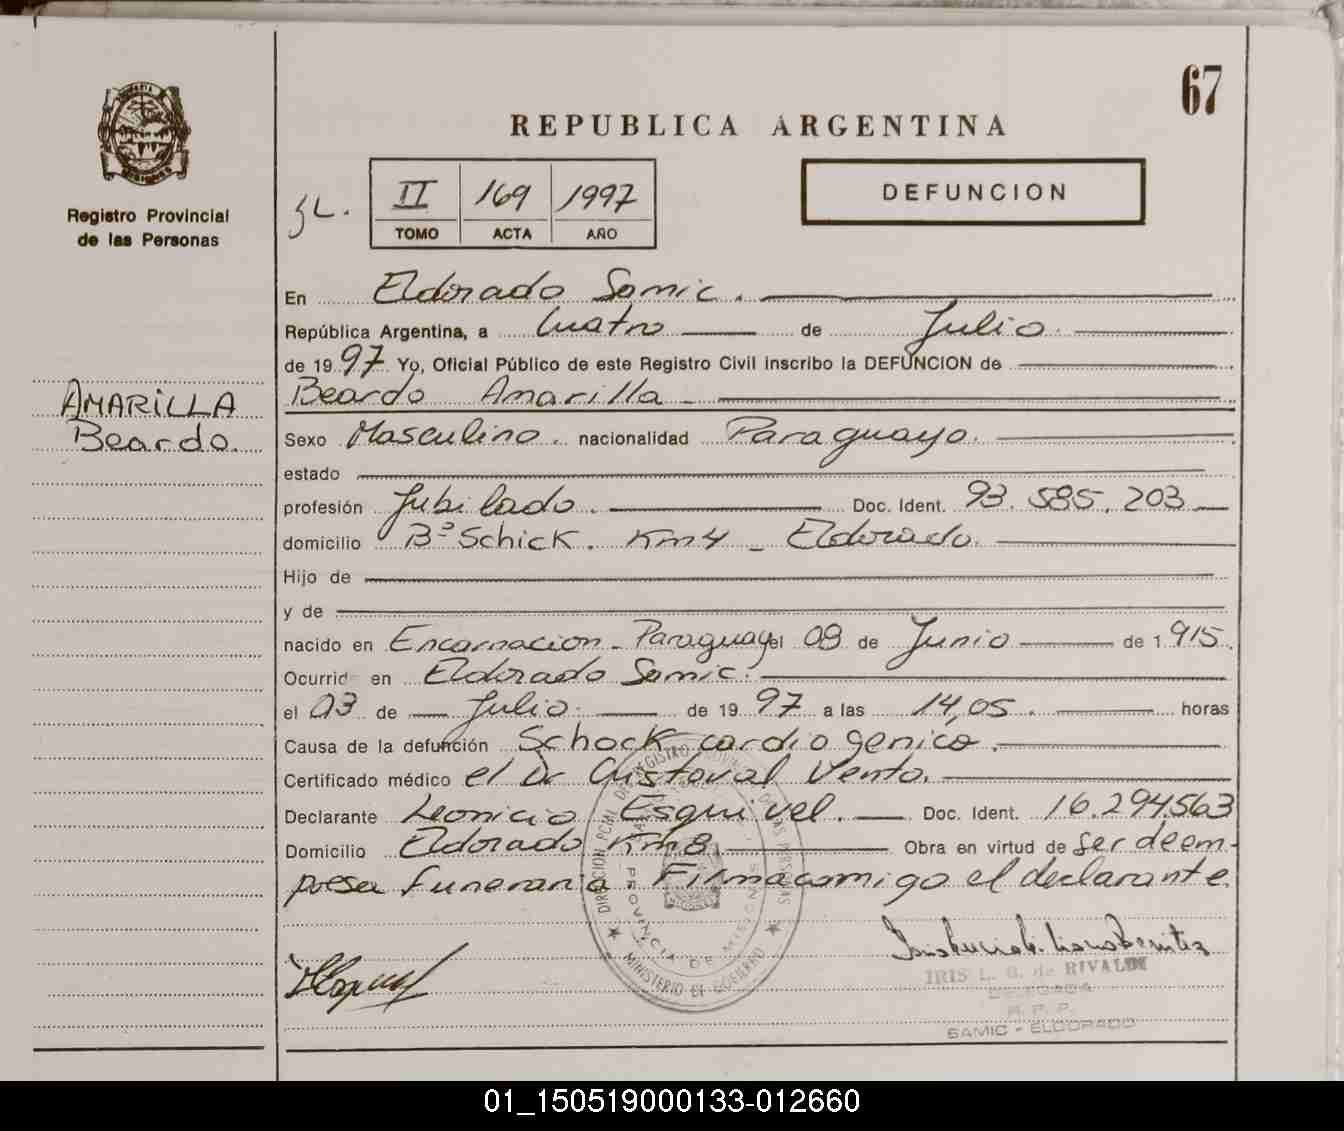 67
REPUBLICA ARGENTINA
Registro Provincial
de las Personas
II 169 1997
TOMO ACTA AÑO
DEFUNCION
En Eldorado Samic.
República Argentina, a Cuatro de Julio
de 1997 Yo, Oficial Público de este Registro Civil inscribo la DEFUNCION de
AMARILLA
Beardo.
Beardo Amarilla
Sexo Masculino. nacionalidad Paraguayo.
estado
profesión Jubilado. Doc. Ident. 93.585.203
domicilio Bº Schick. Km 4 - Eldorado.
Hijo de
y de
nacido en Encarnacion - Paraguay el 08 de Junio de 1915.
Ocurrid en Eldorado Samic.
el 03 de Julio. de 1997 a las 14,05. horas
Causa de la defunción Schock cardiogenico.
Certificado médico el Dr Cristoval Vento.
Declarante Leonicio Esquivel. Doc. Ident. 16.294563
Domicilio Eldorado Km 8 Obra en virtud de ser de em-
presa funeraria Firma comigo el declarante.
DIRECCION PCIAL DEL REGISTRO PROVINCIAL DE LAS PERSONAS
PROVINCIA DE MISIONES
MINISTERIO DE GOBIERNO
IRIS L. G. de RIVALDI
DELEGADA
R. P. P.
SAMIC - ELDORADO
01_150519000133-012660